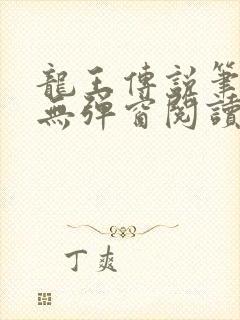 龍王傳說筆
無彈窗閱讀
丁爽